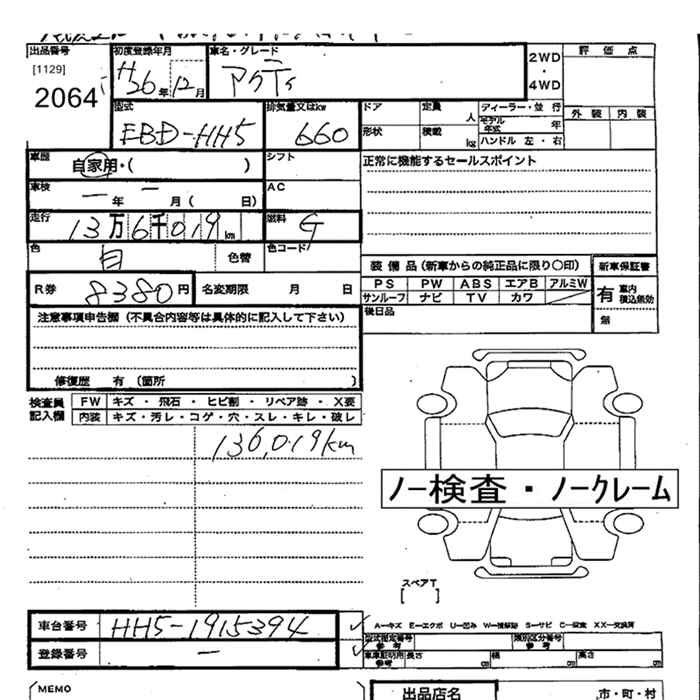 出品番号 初度登録年月 車名・グレード 2WD・4WD 評価点
[1129] H26年12月 アクティ
2064
型式 排気量又はkw ドア 定員 人 ディーラー・並行 外装 内装
EBD-HH5 660 形状 積載 kg モデル年式 年
ハンドル 左・右
車歴 自家用・( ) シフト 正常に機能するセールスポイント
車検 ー年 ー月( 日) AC
走行 13万6千019km 燃料 G
色 白 色替 色コード
装備品(新車からの純正品に限り〇印) 新車保証書
R券 8380円 名変期限 月 日 PS PW ABS エアB アルミW 有 車内積込無効
サンルーフ ナビ TV カワ
注意事項申告欄(不具合内容等は具体的に記入して下さい) 後日品 無
修復歴 有 (箇所 )
検査員記入欄 FW キズ・飛石・ヒビ割・リペア跡・X要
内装 キズ・汚レ・コゲ・穴・スレ・キレ・破レ
136,019km
ノー検査・ノークレーム
スペアT
[ ]
車台番号 HH5-1915394 ✓ A―キズ E―エクボ U―凹み W―補修跡 S―サビ C―腐食 XX―交換済
登録番号 ー ✓ 型式指定番号 参考 類別区分番号 参考
車庫証明用 参考 長さ cm 幅 cm 高さ cm
MEMO 出品店名 市・町・村